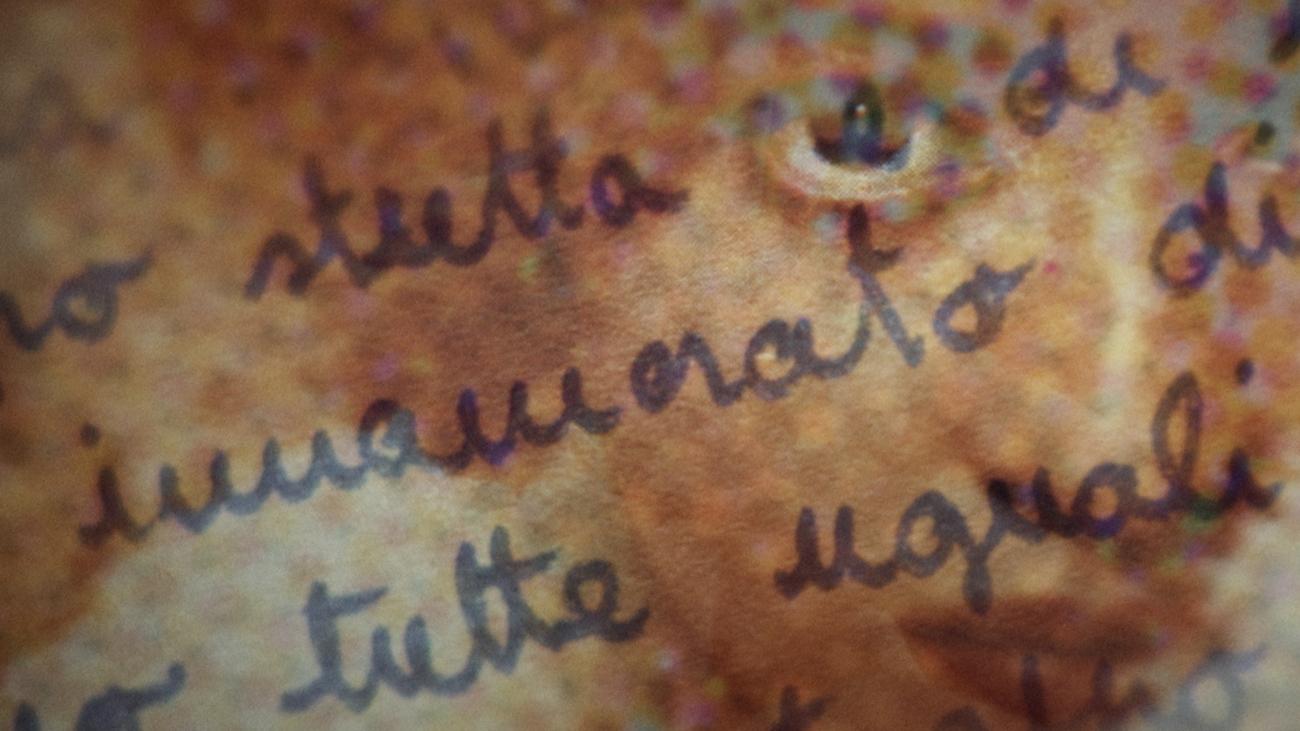 stretta di
innamorato di
tutte uguali